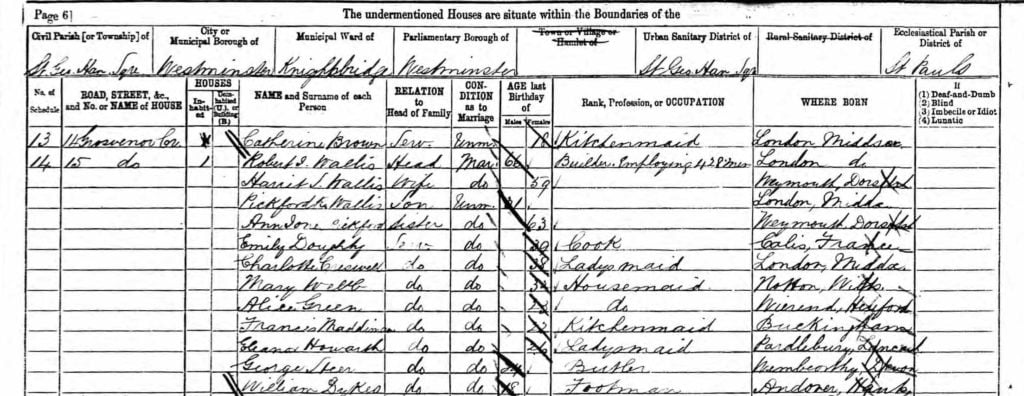 Page 6] The undermentioned Houses are situate within the Boundaries of the
Civil Parish [or Township] of City or Municipal Borough of Municipal Ward of Parliamentary Borough of Town or Village or Hamlet of Urban Sanitary District of Rural Sanitary District of Ecclesiastical Parish or District of
St. Geo. Han. Sqre Westminster Knightsbridge Westminster St. Geo. Han. Sqr St Pauls
No. of Schedule ROAD, STREET, &c., and No. or NAME of HOUSE HOUSES Inhabited Uninhabited (U.), or Building (B.) NAME and Surname of each Person RELATION to Head of Family CONDITION as to Marriage AGE last Birthday of Males Females Rank, Profession, or OCCUPATION WHERE BORN If (1) Deaf-and-Dumb (2) Blind (3) Imbecile or Idiot (4) Lunatic
13 11 Grosvenor Cr. 1 Catherine Brown Serv Unm 18 Kitchenmaid London Middsex
14 15 do 1 Robert Wallis Head Mar 66 Builder Employing 428 Men London do
Harriet Wallis Wife do 59 Weymouth, Dorset
Pickford Wallis Son Unm London, Middx
Ann do 63 Weymouth
Emily Doughty Serv do Cook Calis, France
Charlotte Creswell do do 38 Ladysmaid London, Middx
Mary Webb do do Housemaid Notton, Wilts
Alice Green do do do Hereford
Frances do do Kitchenmaid Buckingham
Eleanor Howarth do do 26 Ladysmaid
George Steer do do Butler Wembworthy Devon
William Dykes do do 18 Footman Andover, Hants